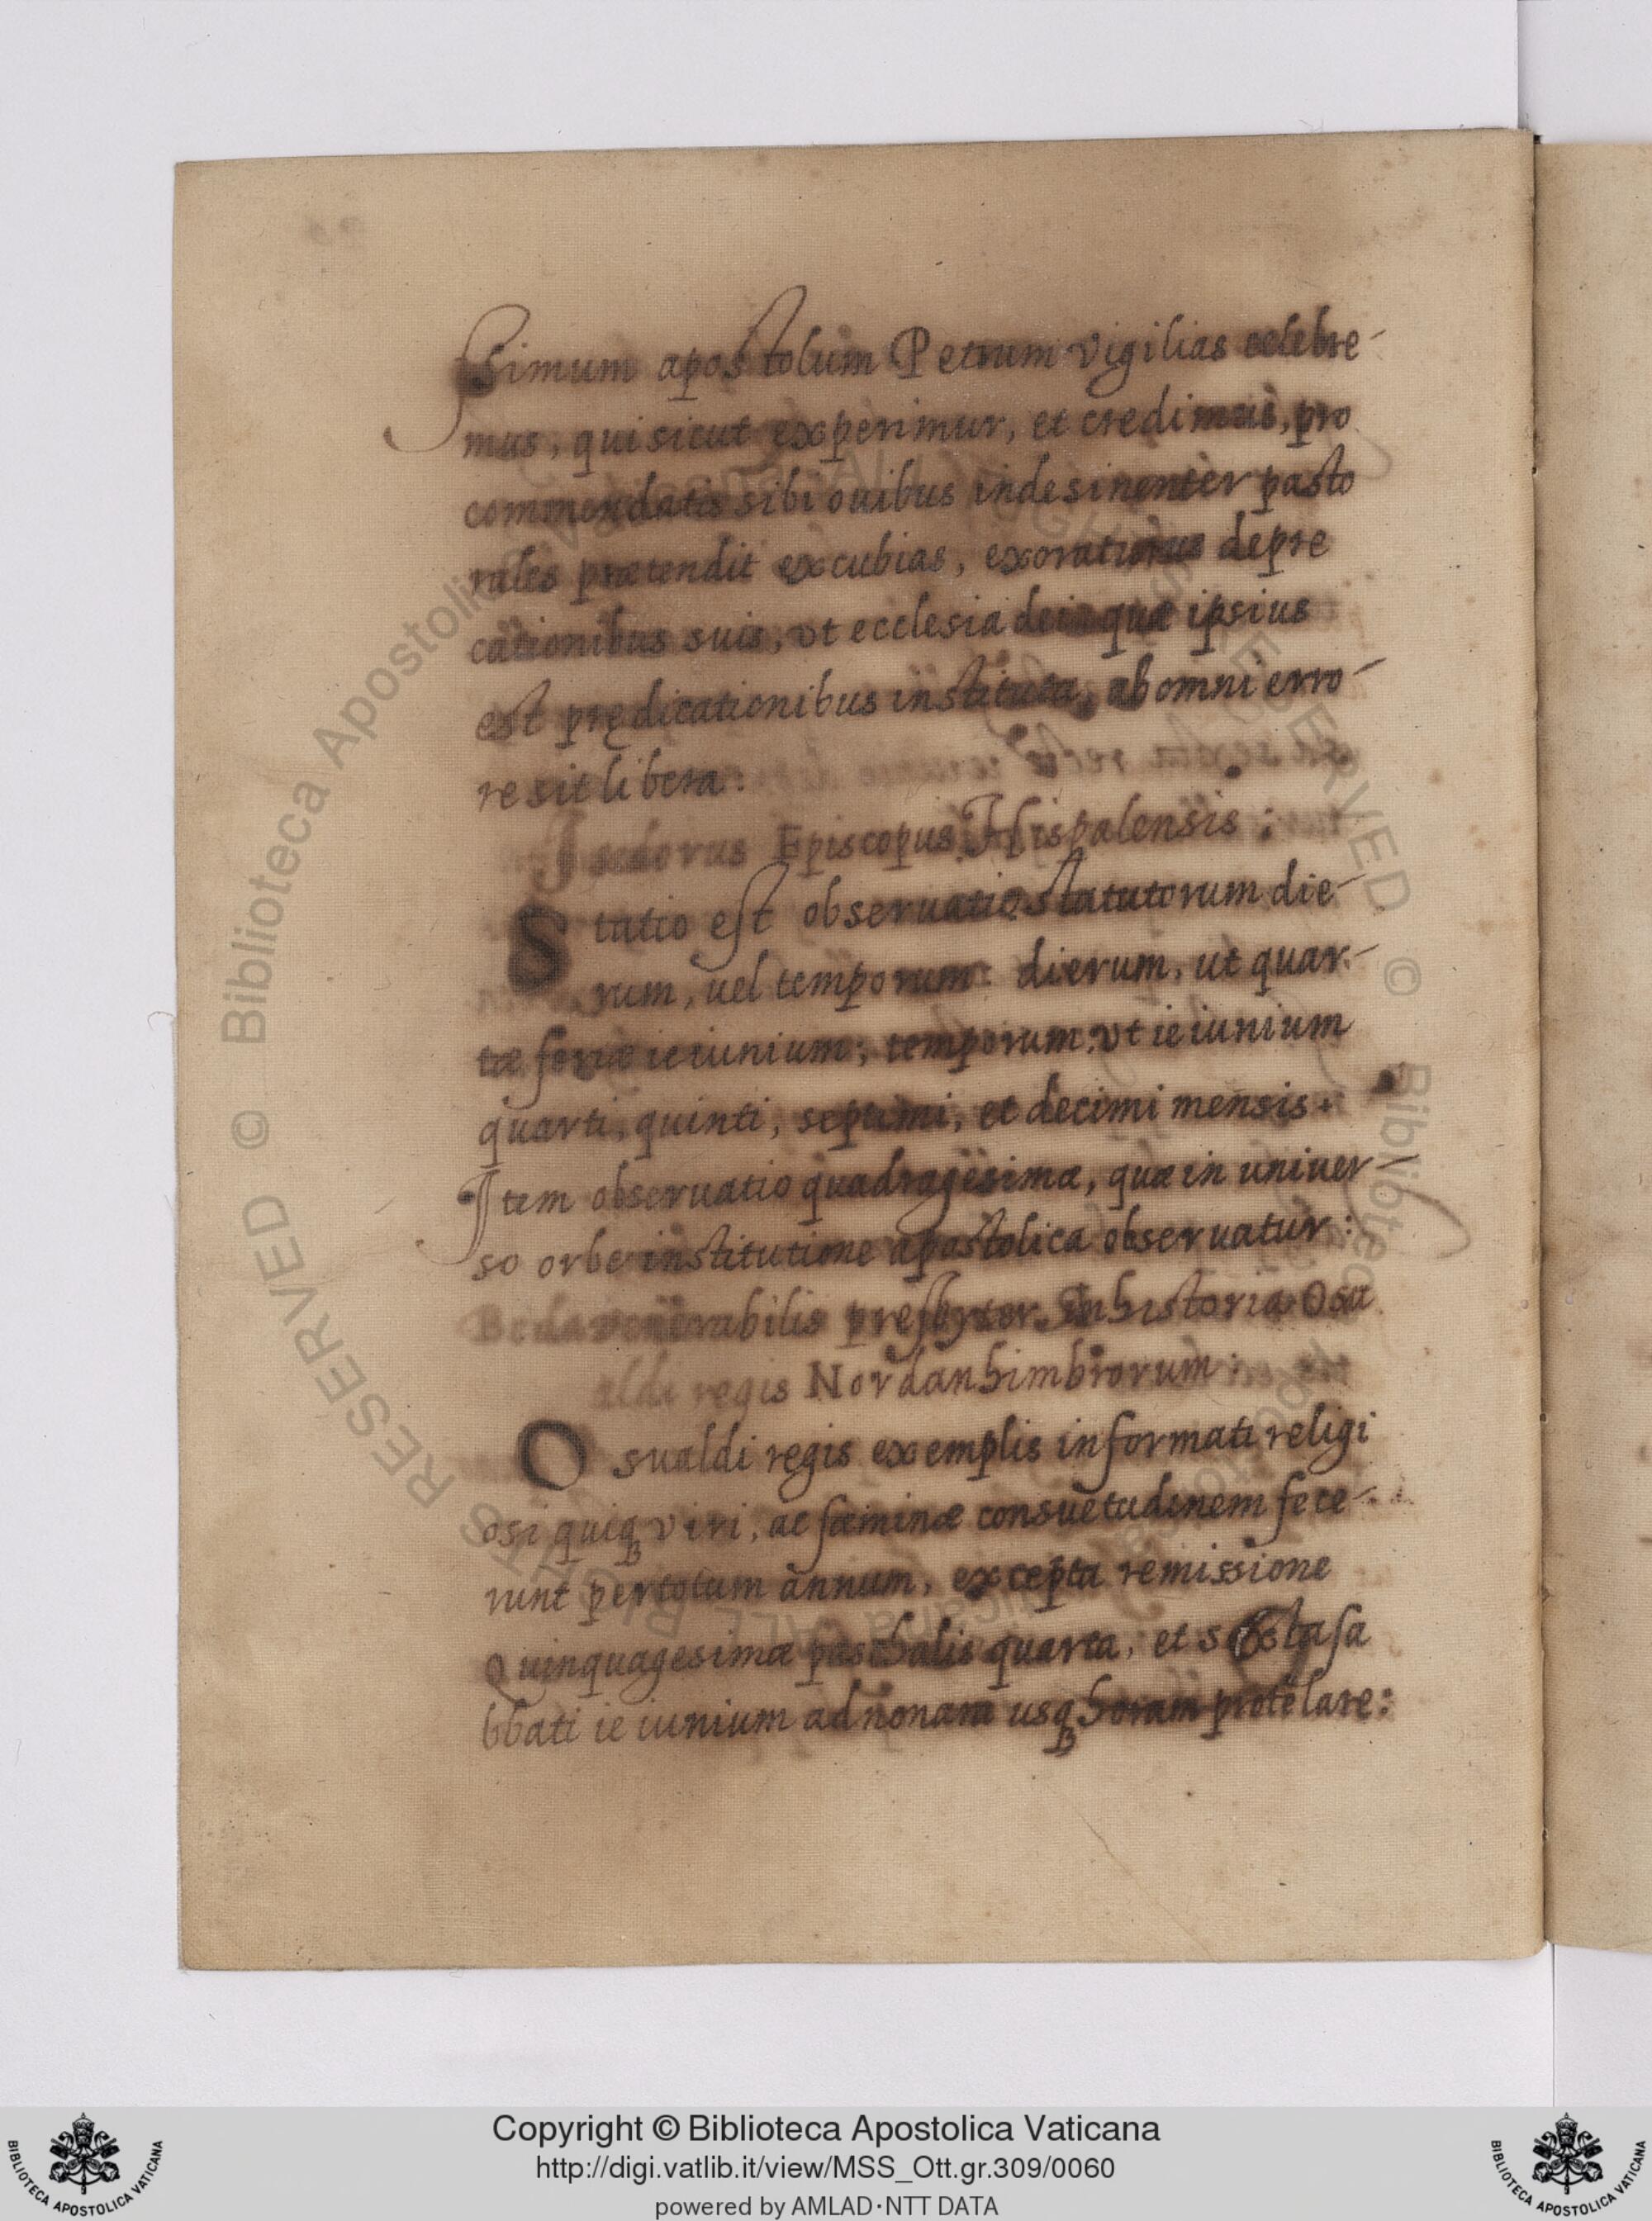 ssimum apostolum Petrum vigilias celebre-
mus, qui sicut experimur, et credimus, pro
commendatis sibi ouibus indesinenter pasto
rales prætendit excubias, exoraturus depre
cationibus suis, vt ecclesia dei, quæ ipsius
est prędicationibus instituta, ab omni erro-
re sit libera:
Isidorus Episcopus Hispalensis:
Statio est obseruatio statutorum die-
rum, uel temporum: dierum, ut quar-
tæ feriæ ieiunium; temporum, vt ieiunium
quarti, quinti, septimi, et decimi mensis.
Item obseruatio quadragesimæ, quæ in uniuer-
so orbe institutione apostolica obseruatur:
Beda venerabilis presbyter in historia Osu
aldi regis Nordanhimbrorum:
Osualdi regis exemplis informati religi
osi quiqȝ viri, ac fæminæ consuetudinem fece-
runt per totum annum, excepta remissione
Quinquagesimæ paschalis quarta, et sexta sa
bbati ieiunium ad nonam usqȝ horam protelare:
Copyright © Biblioteca Apostolica Vaticana
http://digi.vatlib.it/view/MSS_Ott.gr.309/0060
powered by AMLAD·NTT DATA
BIBLIOTECA APOSTOLICA VATICANA
BIBLIOTECA APOSTOLICA VATICANA